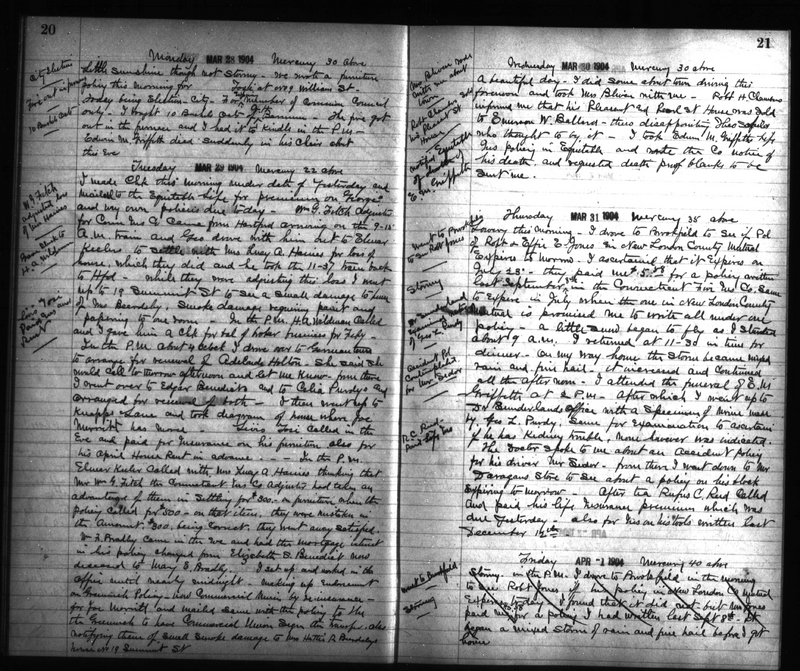 20
Monday MAR 28 1904 Mercury 30 above
Little sunshine though not stormy - We wrote a furniture
policy this morning for Tosh at No 9 William St.
Today being Election - City - For member of common Council
only - I bought 10 Bushels Oats of Bennum - The fire got
out in the furnace and I had it to kindle in the P.M -
Edwin M. Griffith died suddenly in his chair about
this Eve
City Election
10 Bushels Oats
Tuesday MAR 29 1904 Mercury 22 above
I made Chk this morning under date of yesterday and
mailed to the Equitable Life for premium on George's
and my own policies due to day - Wm G. Fitch Adjuster
for Conn Ins Co came from Hartford arriving on the 9-15
A.M. train and Geo drove with him out to Elmer
Keeler to settle with Mrs Lucy A. Harries for loss of
house, which they did and he took the 11-37 train back
to Htfd - while they were adjusting this loss I went
up to 19 Summit St to see a small damage to house
of Mrs Beardsley. Smoke damage requiring paint and
papering to one room - In the P.M. H.A. Wildman called
and I gave him a Chk for bal of broker business for Feby -
In the P.M. about 4 oclock I drove over to
to arrange for renewal of Adelaide Holton She said she
would call to morrow afternoon and let me know - from there
I went over to Edgar Benedicts and to Celia Purdys and
arranged for renewal of both - I then went up to
Knapps Lane and took diagram of house where Joe
Morritt has moved - Louis Tosi called in the
Eve and paid for Insurance on his furniture also for
his April House Rent in advance - In the P.M.
Elmer Keeler called with Mrs Lucy A. Harries thinking that
Mr Wm G. Fitch the Connecticut Ins Co Adjuster had taken an
advantage of them in settling for $300 - on furniture when the
policy called for $500 - on that item. they were mistaken in
the amount, $300, being correct, they went away satisfied.
Wm F. Bradley came in the Eve and had the mortgage interest
in his policy changed from Elizabeth S. Benedict now
deceased to Mary E. Bradley. I sat up and worked in the
office until nearly midnight - making up endorsement
on Greenwich Policy - now Commercial Union by re-insurance -
for Joe Morritt and mailed same with the policy to the
the Greenwich to have Commercial Union sign the transfer - also
notifying them of small smoke damage to Mrs Hattie A. Beardsleys
house No 19 Summit St
W.G. Fitch
adjusted loss
of Mrs Harries
Gave Check to
H.A. Wildman
Louis Tosi
Paid Ins and
Rent
21
Wednesday MAR 30 1904 Mercury 30 above
A beautiful day - I did some about town driving this
forenoon and took Mrs Bliven with me - Robt H. Clemens
informed me that his Pleasant and Pearl St House was sold
to Emerson W. Ballard - thus disappointing Theo
who thought to buy it - I took Edwin M. Griffith Life
Ins policy in Equitable and wrote the Co notice of
his death, and requested death proof blanks to be
sent me.
Mrs Bliven rode
with me about
town
Robt Clemens sold
his Pleasant St
House
notified Equitable
of death of
E.M. Griffith
Thursday MAR 31 1904 Mercury 35 above
Lowery this morning - I drove to Brookfield to see if Pol
of Robt & Effie E. Jones in New London County Mutual
Expires to morrow. I ascertained that it Expires on
July 25th - they paid me for a policy written
last September, in the Connecticut Fire Ins Co. Same
to Expire in July when the one in New London County
Mutual is promised me to write all under one
policy - a little snow began to fly as I started
about 9 a.m. I returned at 11-30 in time for
dinner - On my way home the storm became mixed
rain and fine hail - it increased and continued
all the after noon - I attended the funeral of E.M
Griffith at 2 P.M. - After which I went up to
Dr Sunderlands office with a specimen of urine made
by Geo L. Purdy, Same for examination to ascertain
if he has Kidney trouble, none however was indicated.
The Doctor spoke to me about an accident policy
for his driver Mr Sedor. from there I went down to Mr
Daragans Store to see about a policy on his stock
Expiring to morrow. - After tea Rufus C. Reed called
and paid his life Insurance premium which was
due yesterday - also for Ins on his tools written last
December 12th
went to Brookfield
to see Robt Jones
Stormy
Dr Sunderland
Examined urine
of Geo L. Purdy
Accident Pol
Contemplated
for Mr Sedor
R.C. Reed
Paid Life Ins
Friday APR -1 1904 Mercury 40 above
Stormy - in the P.M. I drove to Brookfield in the morning
to see Robt Jones if his policy in New London Co Mutual
Expired today. I found that it did not but Mr Jones
paid me for a policy I had written last Sept 8th - It
began a mixed storm of rain and fine hail before I got
home
went to Brookfield
Stormy